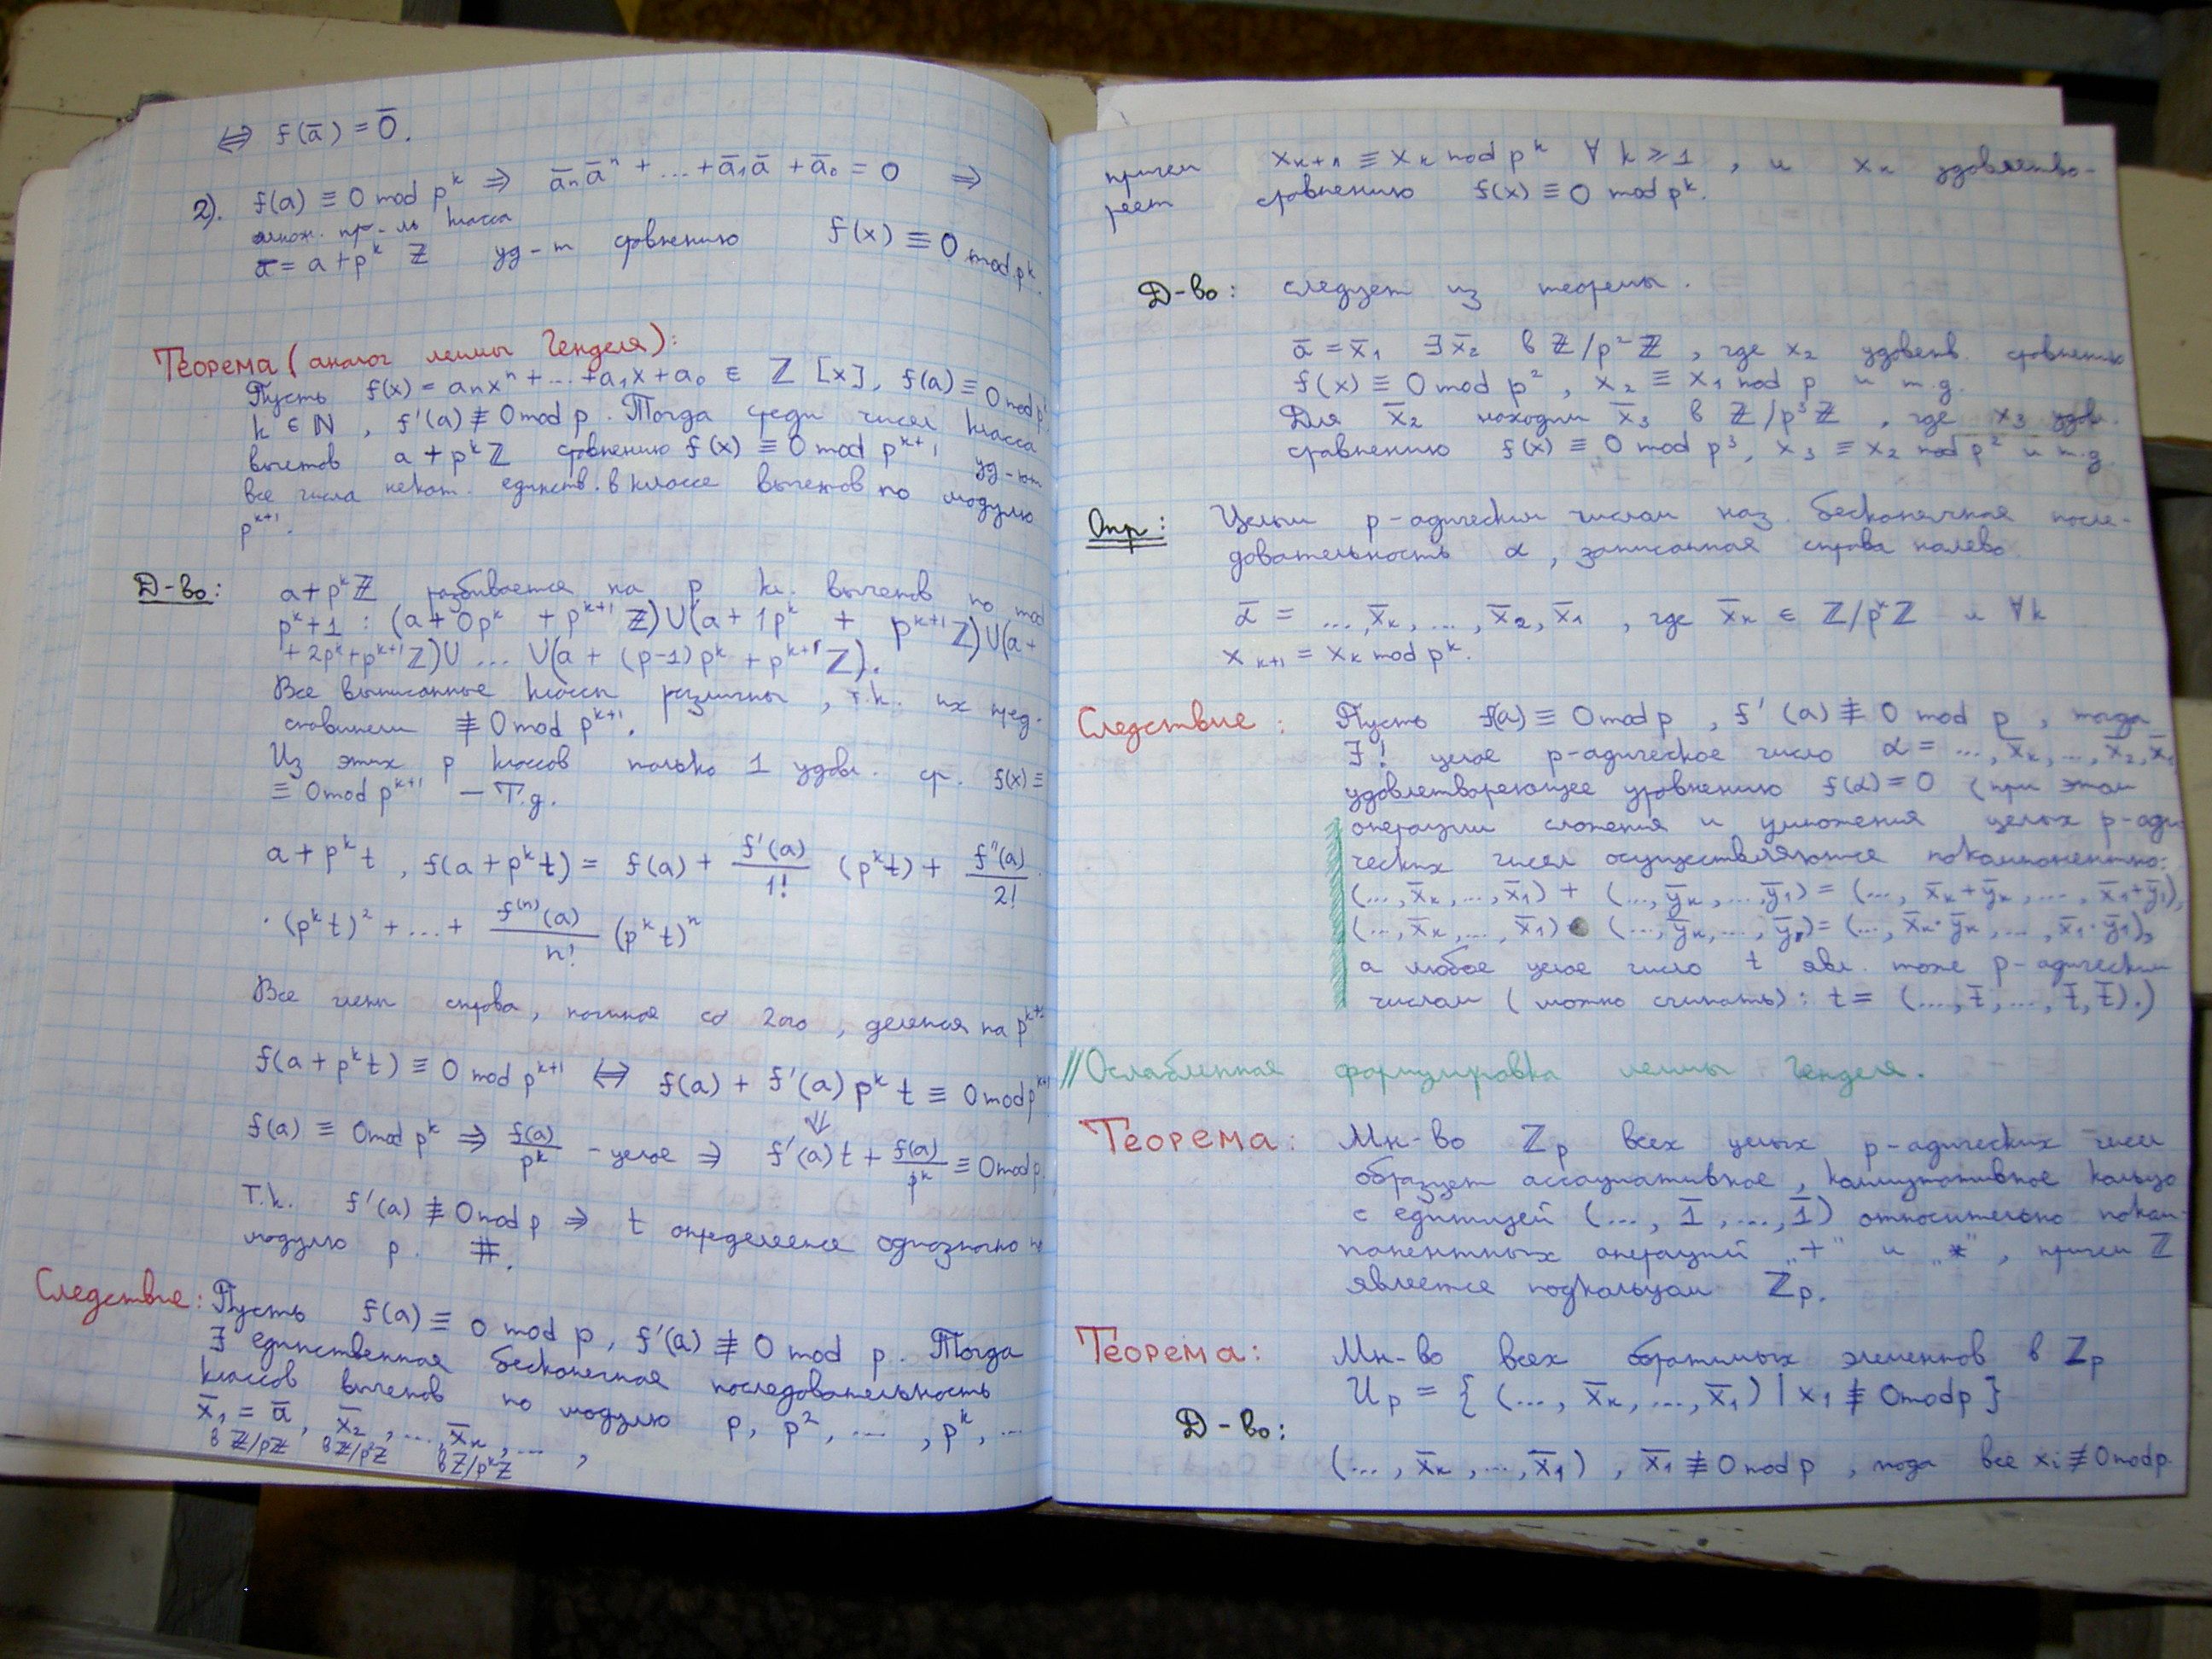 ⇔ f(ā) = 0̄.
2). f(a) ≡ 0 mod p^k ⇒ ā_n ā^n + ... + ā_1 ā + ā_0 = 0 ⇒
пр-ль класса
ā = a + p^k ℤ уд-т сравнению f(x) ≡ 0 mod p^k.
Теорема (аналог леммы Гензеля):
Пусть f(x) = a_n x^n + ... + a_1 x + a_0 ∈ ℤ[x], f(a) ≡ 0 mod p^k
k ∈ ℕ, f'(a) ≢ 0 mod p. Тогда среди чисел класса
вычетов a + p^k ℤ сравнению f(x) ≡ 0 mod p^{k+1} уд-ют
все числа некот. единств. в классе вычетов по модулю
p^{k+1}.
Д-во: a + p^k ℤ разбивается на p кл. вычетов по mod
p^k+1 : (a + 0p^k + p^{k+1} ℤ) ∪ (a + 1p^k + p^{k+1} ℤ) ∪ (a +
+ 2p^k + p^{k+1} ℤ) ∪ ... ∪ (a + (p-1) p^k + p^{k+1} ℤ).
Все выписанные классы различны, т.к. их пред-
ставители ≢ 0 mod p^{k+1}.
Из этих p классов только 1 удовл. ср. f(x) ≡
≡ 0 mod p^{k+1} – Т.д.
a + p^k t, f(a + p^k t) = f(a) + f'(a)/1! (p^k t) + f''(a)/2! ·
· (p^k t)^2 + ... + f^{(n)}(a)/n! (p^k t)^n
Все члены справа, начиная со 2ого, делятся на
f(a + p^k t) ≡ 0 mod p^{k+1} ⇔ f(a) + f'(a) p^k t ≡ 0 mod p^{k+1}
⇓
f(a) ≡ 0 mod p^k ⇒ f(a)/p^k – целое ⇒ f'(a) t + f(a)/p^k ≡ 0 mod p.
Т.к. f'(a) ≢ 0 mod p ⇒ t определяется однозначно по
модулю p. #.
Следствие: Пусть f(a) ≡ 0 mod p, f'(a) ≢ 0 mod p. Тогда
∃ единственная бесконечная последовательность
классов вычетов по модулю p, p^2, ... , p^k, ...
x̄_1 = ā, x̄_2, ..., x̄_k, ... ,
в ℤ/pℤ в ℤ/p^2ℤ в ℤ/p^kℤ
причем x_{k+1} ≡ x_k mod p^k ∀ k ⩾ 1, и x_k удовлетво-
ряет сравнению f(x) ≡ 0 mod p^k.
Д-во: следует из теоремы.
ā = x̄_1 ∃ x̄_2 в ℤ/p^2 ℤ, где x_2 удовлетв. сравнению
f(x) ≡ 0 mod p^2, x_2 ≡ x_1 mod p и т.д.
Для x̄_2 находим x̄_3 в ℤ/p^3 ℤ, где x_3 удовл.
сравнению f(x) ≡ 0 mod p^3, x_3 ≡ x_2 mod p^2 и т.д.
Опр: Целым p-адическим числом наз. бесконечная после-
довательность α, записанная справа налево
ᾱ = ..., x̄_k, ..., x̄_2, x̄_1, где x̄_k ∈ ℤ/p^k ℤ и ∀k
x_{k+1} = x_k mod p^k.
Следствие: Пусть f(a) ≡ 0 mod p, f'(a) ≢ 0 mod p, тогда
∃! целое p-адическое число α = ..., x̄_k, ..., x̄_2, x̄_1
удовлетворяющее уравнению f(α) = 0 (при этом
операции сложения и умножения целых p-ади-
ческих чисел осуществляются покомпонентно:
(..., x̄_k, ..., x̄_1) + (..., ȳ_k, ..., ȳ_1) = (..., x̄_k + ȳ_k, ..., x̄_1 + ȳ_1),
(..., x̄_k, ..., x̄_1) • (..., ȳ_k, ..., ȳ_1) = (..., x̄_k · ȳ_k, ..., x̄_1 · ȳ_1),
а любое целое число t явл. тоже p-адическим
числом (можно считать): t = (..., t̄, ..., t̄, t̄).)
// Ослабленная формулировка леммы Гензеля.
Теорема: Мн-во ℤ_p всех целых p-адических чисел
образует ассоциативное, коммутативное кольцо
с единицей (..., 1̄, ..., 1̄) относительно покомпо-
нентных операций „+" и „*", причем ℤ
является подкольцом ℤ_p.
Теорема: Мн-во всех обратимых элементов в ℤ_p
U_p = { (..., x̄_k, ..., x̄_1) | x_1 ≢ 0 mod p }
Д-во:
(..., x̄_k, ..., x̄_1), x̄_1 ≢ 0 mod p, тогда все x_i ≢ 0 mod p.